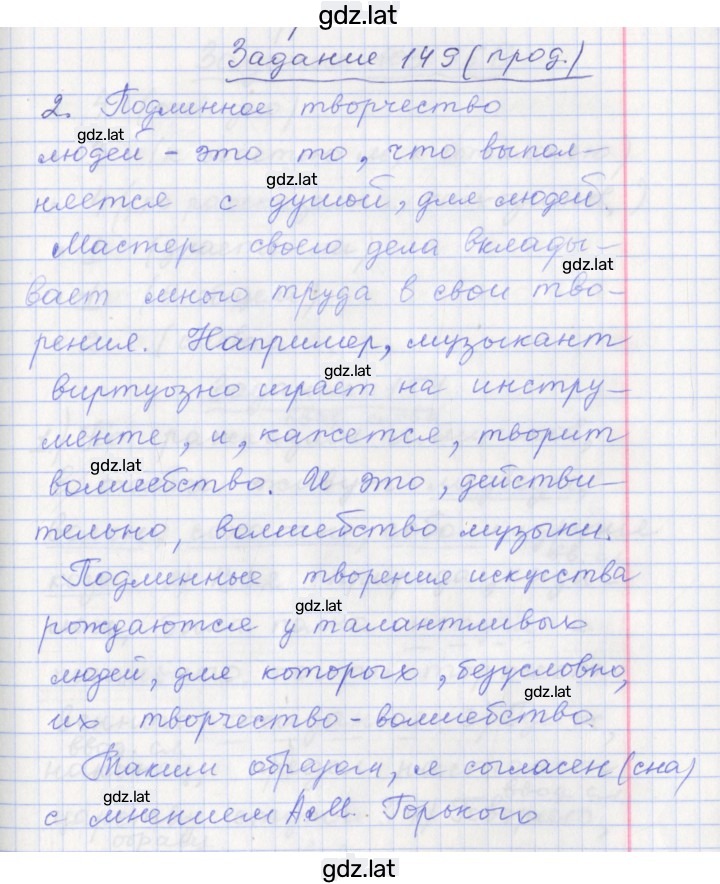 gdz.lat
Задание 149 (прод.)
2. Подлинное творчество
gdz.lat
людей - это то, что выпол-
gdz.lat
няется с душой, для людей.
Мастера своего дела вклады-
gdz.lat
вает много труда в свои тво-
рения. Например, музыкант
gdz.lat
виртуозно играет на инстру-
менте, и, кажется, творит
gdz.lat
волшебство. И это, действи-
тельно, волшебство музыки.
Подлинные творения искусства
gdz.lat
рождаются у талантливых
людей, для которых, безусловно,
gdz.lat
их творчество - волшебство.
Таким образом, я согласен (сна)
gdz.lat
с мнением А.М. Горького
gdz.lat